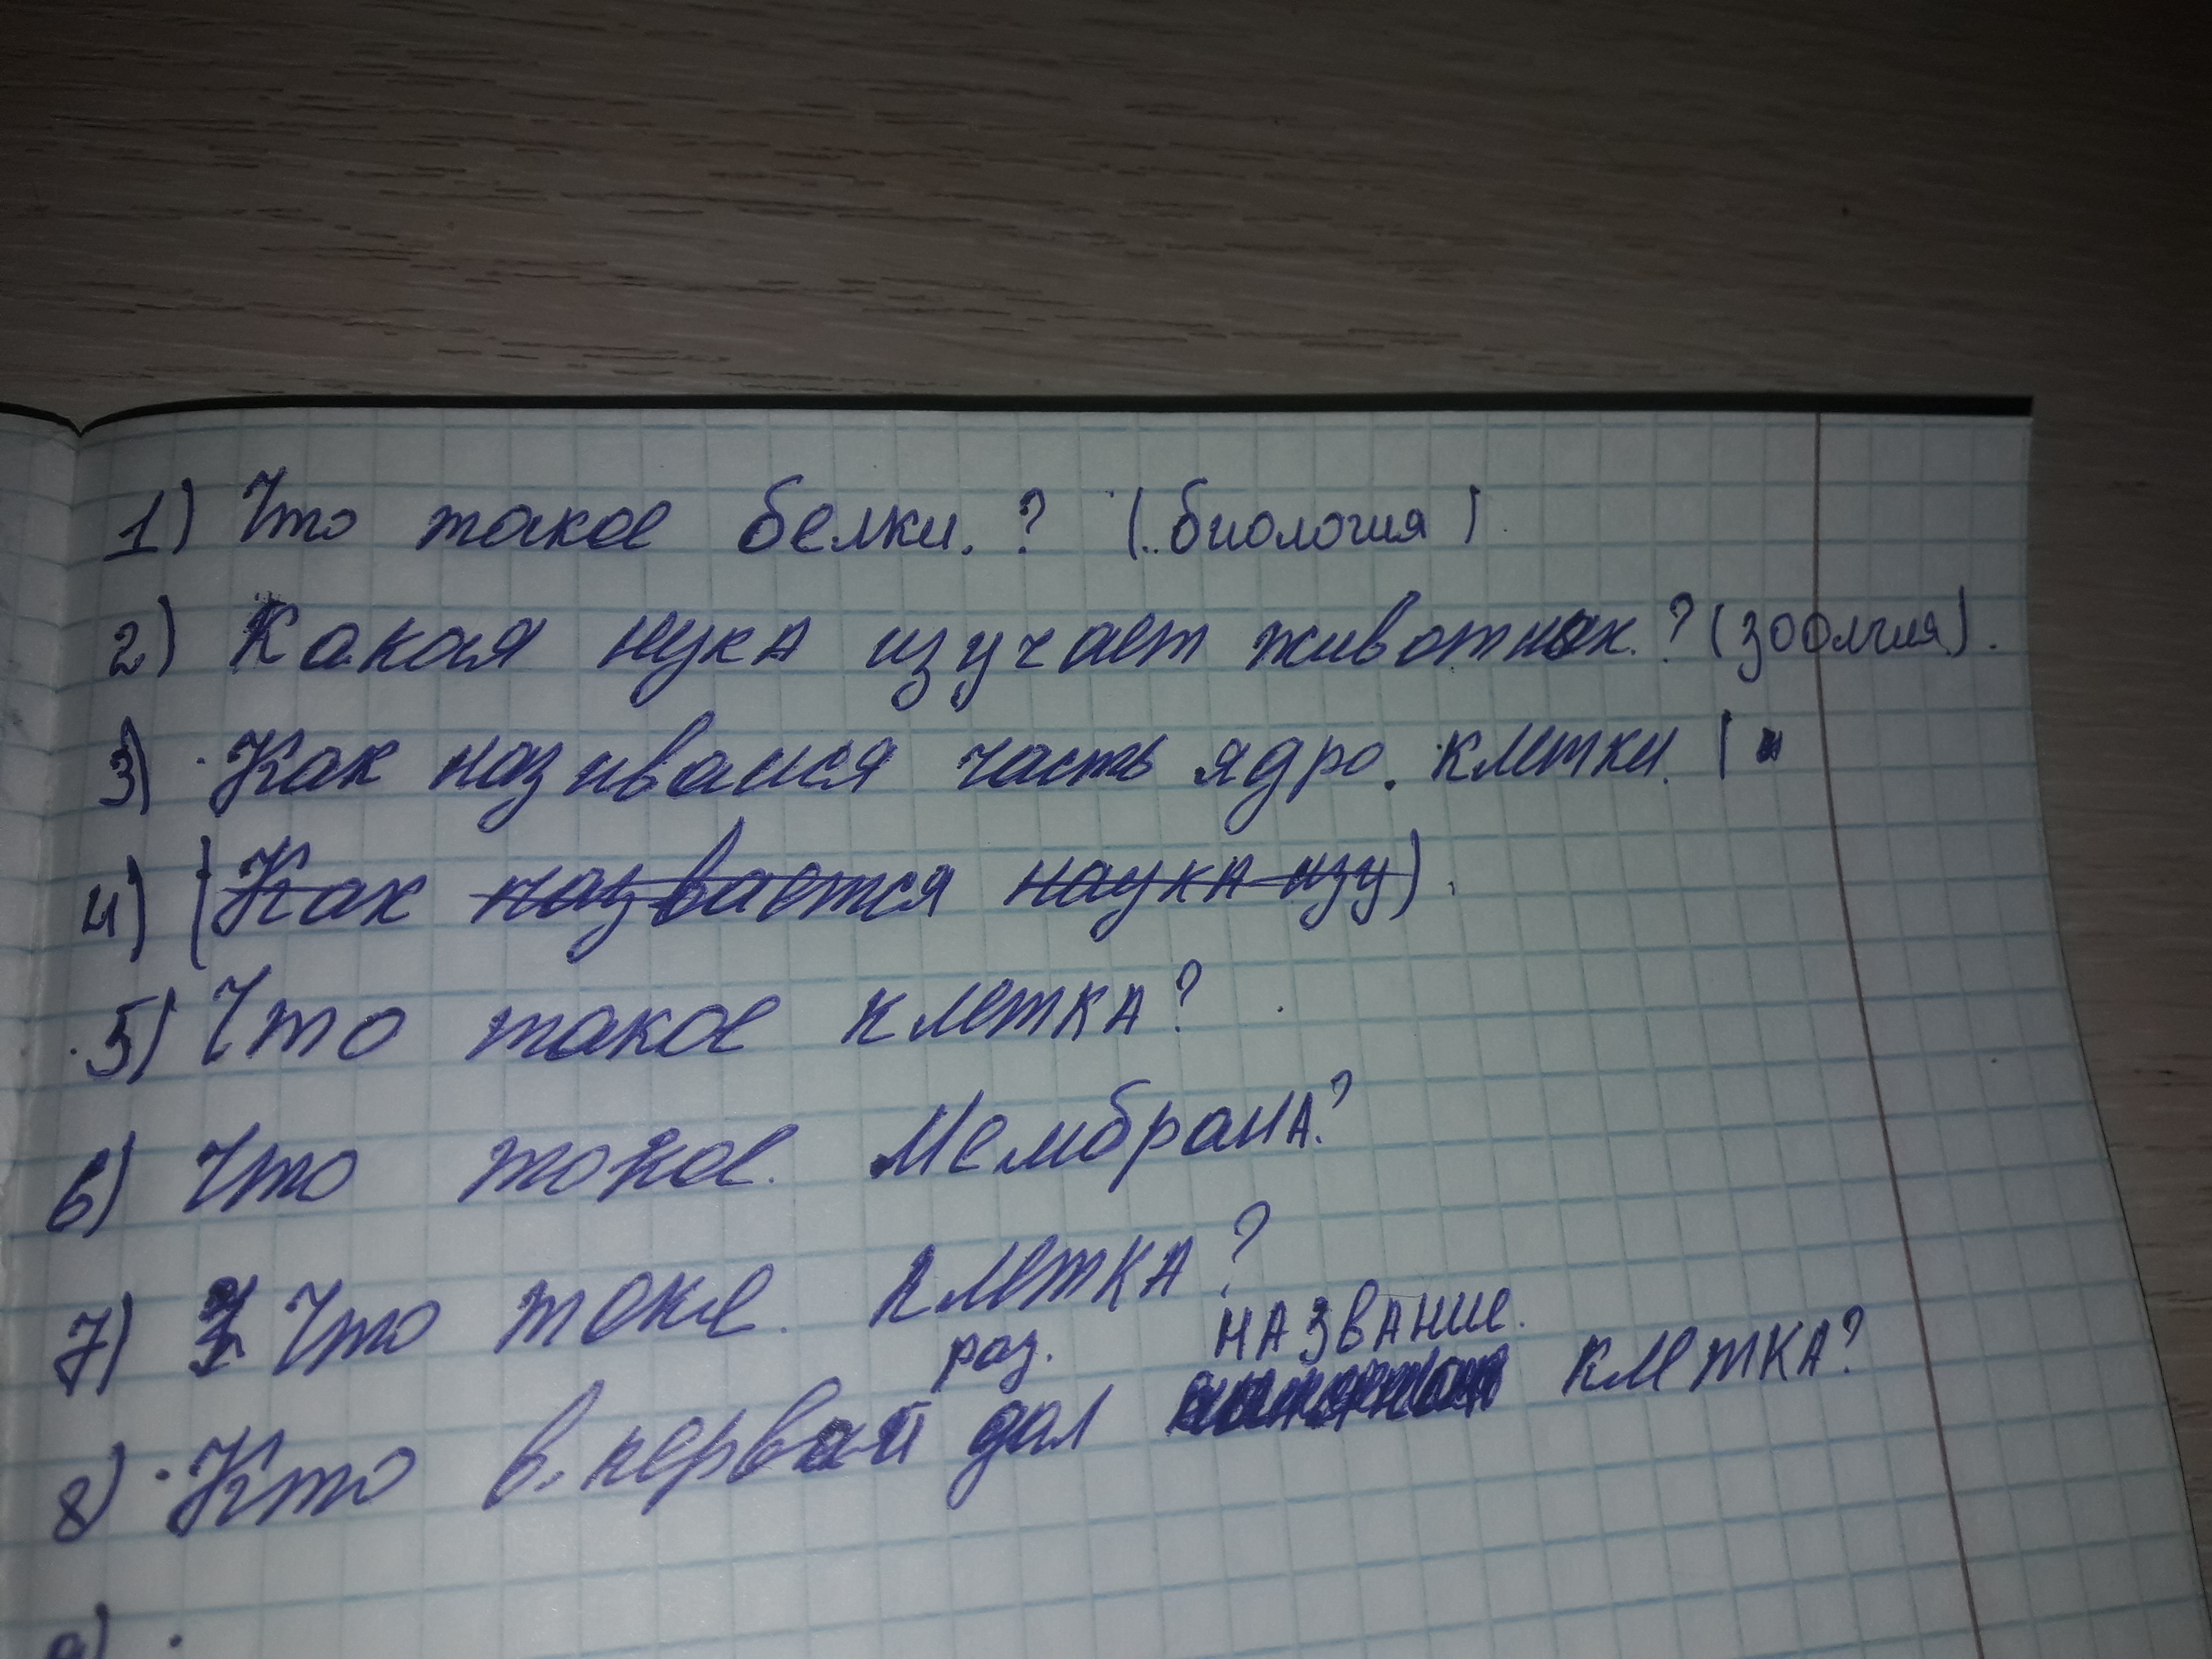 1) Что такое белки.? (биология)
2) Какая нука изучает животных.? (зоолгия).
3) Как называися часть ядро. клетки. (
4) (Как назвается наука изу).
5) Что такое клетка?
6) Что такое. Мембрана?
7) Что таке. клетка?
раз. название.
8) Кто в.первай дал клетка?
9)